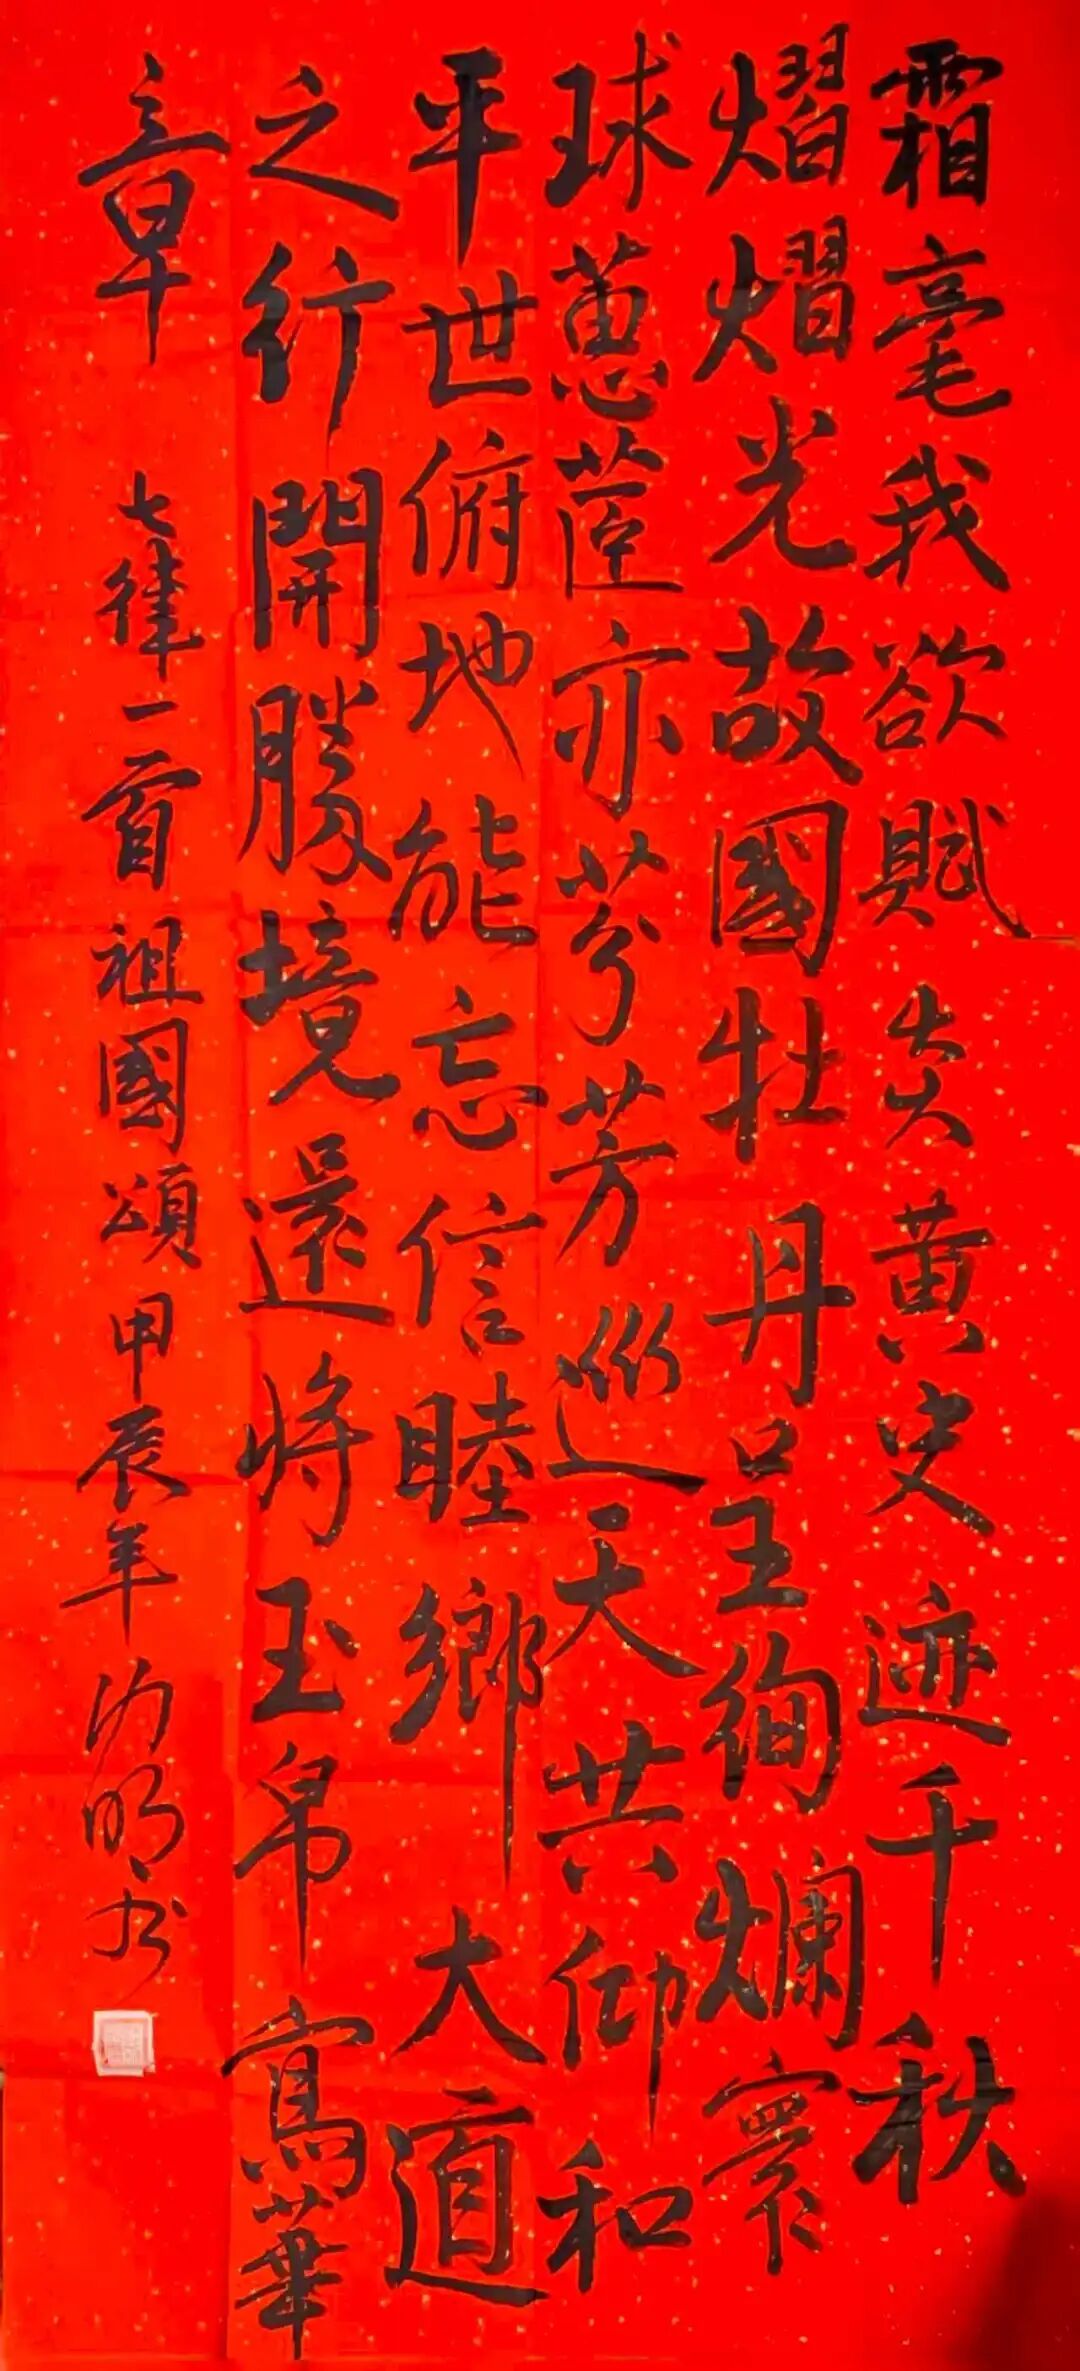 霜毫我欲賦炎黄史迹千秋
熠熠光故國牡丹呈絢爛寰
球蕙茝亦芬芳巡天共仰和
平世俯地能忘信睦鄉大道
之行開勝境還將玉帛寫華
章 七律一首祖國頌甲辰年 明书